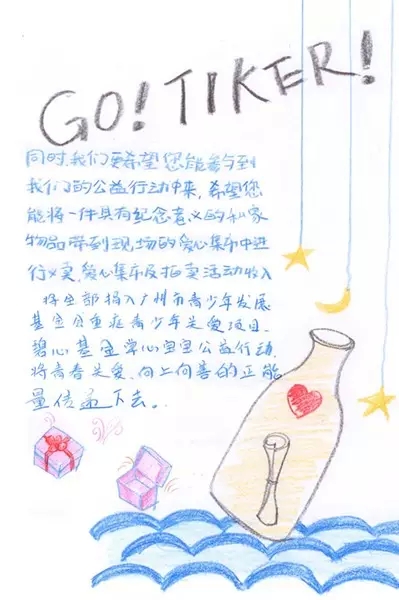 GO! TIKER!
同时，我们更希望您能参与到
我们的公益行动中来，希望您
能将一件具有纪念意义的私家
物品带到现场的爱心集市中进
行义卖，爱心集市及拍卖活动收入
将全部捐入广州市青少年发展
基金会重症青少年关爱项目、
碧心基金掌心宝宝公益行动，
将青春关爱、向上向善的正能
量传递下去。